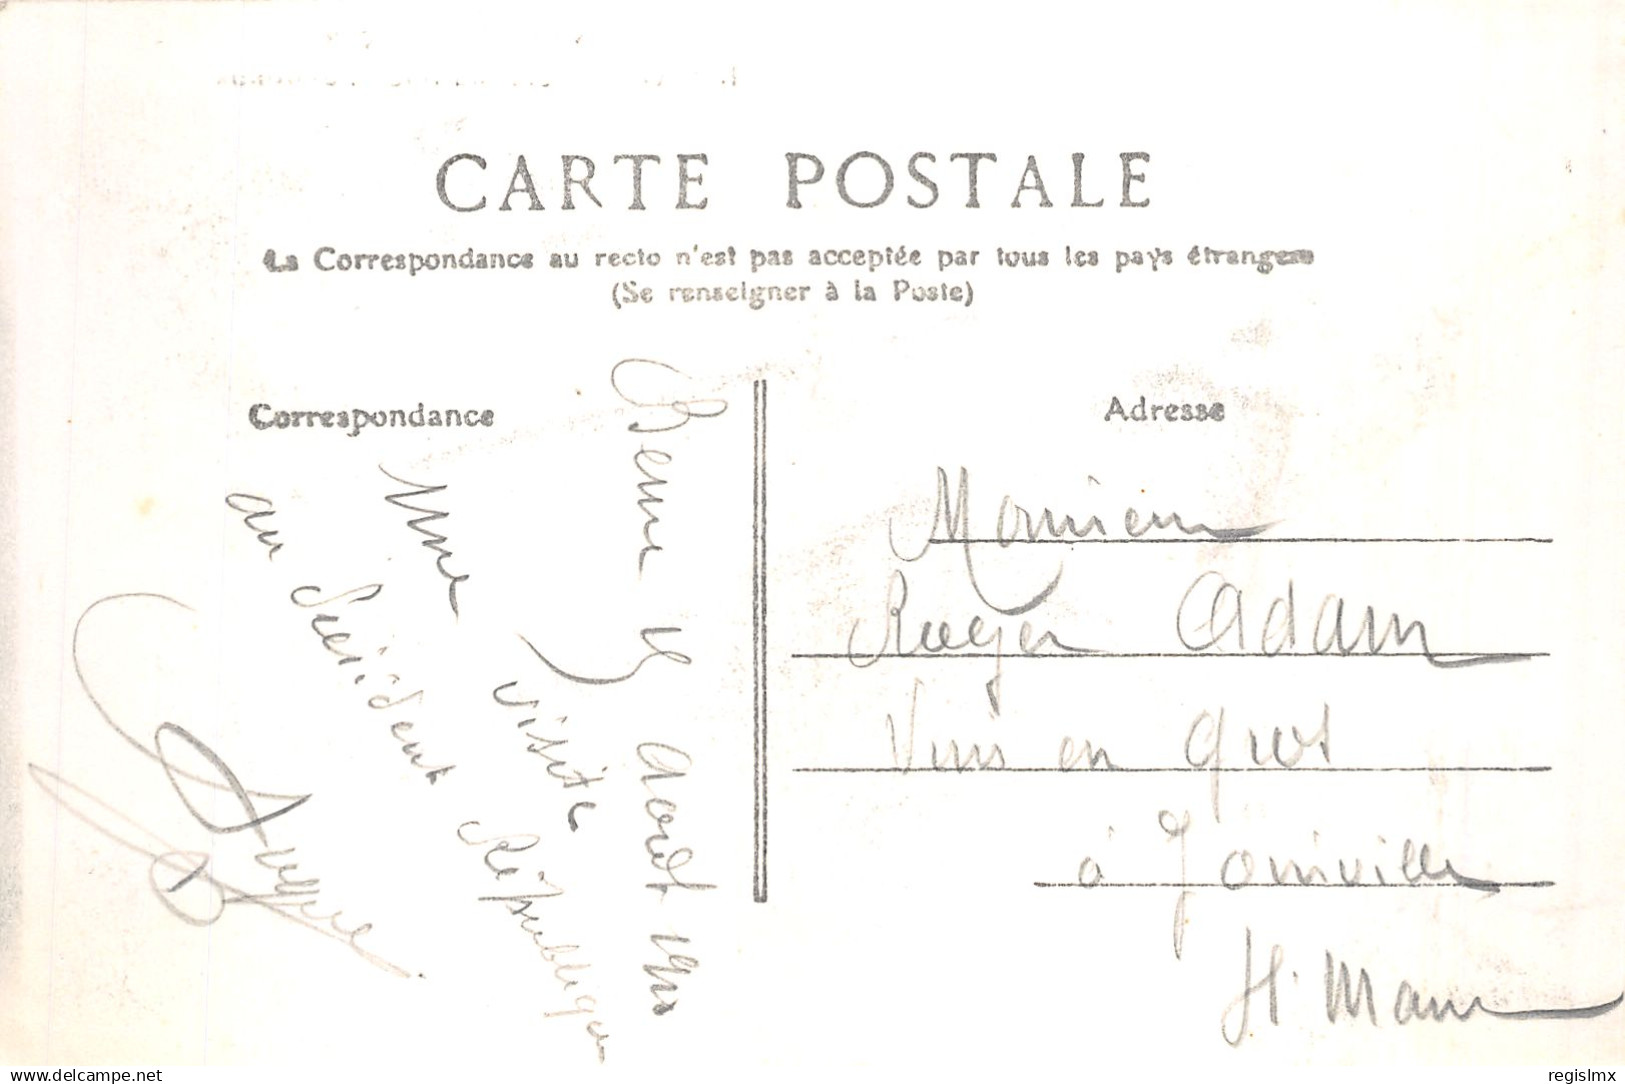 CARTE POSTALE
La Correspondance au recto n'est pas acceptée par tous les pays étrangers
(Se renseigner à la Poste)
Correspondance
Berne le 15 août 1910
Une visite
au Président République
Adresse
Monsieur
Roger Adam
Vins en gros
à Joinville
H. Marne
www.delcampe.net
regislmx